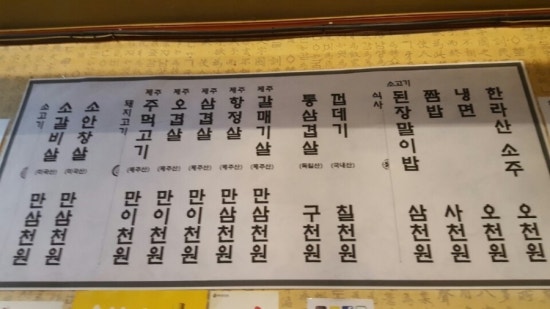 소고기
소갈비살 (미국산) 만삼천원
소안창살 (미국산) 만삼천원
돼지고기
제주 주먹고기 (제주산) 만이천원
제주 오겹살 (제주산) 만이천원
제주 삼겹살 (제주산) 만이천원
제주 항정살 (제주산) 만삼천원
제주 갈매기살 (제주산) 만삼천원
통삼겹살 (독일산) 구천원
껍데기 (국내산) 칠천원
식사
소고기 된장말이밥 삼천원
짬밥 사천원
냉면 오천원
한라산 소주 오천원